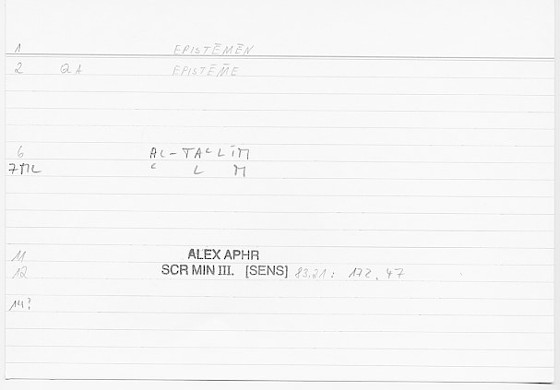 1 EPISTĒMĒN
2 QA EPISTĒMĒ
6 AL-TAʿLĪM
7ML ʿ L M
11 ALEX APHR
12 SCR MIN III. [SENS] 83.21: 172.47
14!